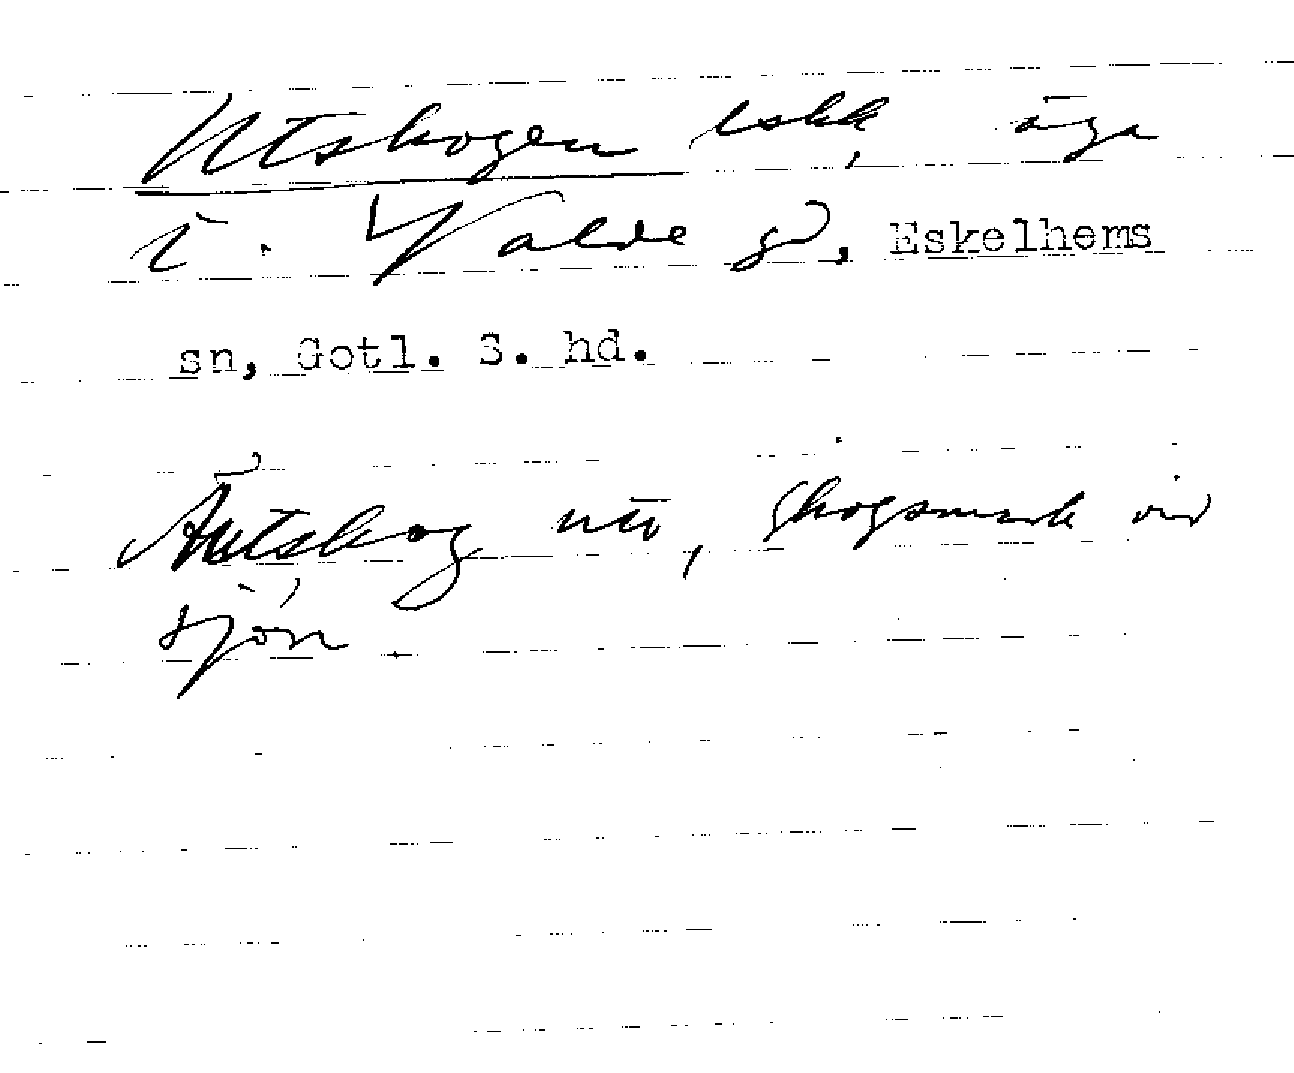 Utskogen uskk, äga
i Valde gd, Eskelhems
sn, Gotl. S. hd.
Äutskog utö, skogsmark vid
sjön.